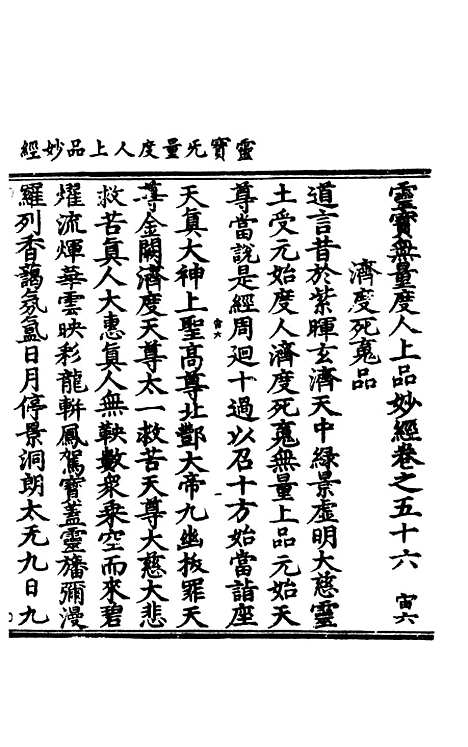 靈寶无量度人上品妙經
靈寶無量度人上品妙經卷之五十六 宙六
濟度死魂品
道言昔於紫暉玄濟天中綠景虛明大慈靈
土受元始度人濟度死魂無量上品元始天
尊當說是經周迴十過以召十方始當詣座
宙六
天真大神上聖高尊北酆大帝九幽拔罪天
尊金闕濟度天尊太一救苦天尊大慈大悲
救苦真人大惠真人無鞅數衆乘空而來碧
燿流煇華雲映彩龍軿鳳駕寶蓋靈旛彌漫
羅列香藹氛氳日月停景洞朗太无九日九